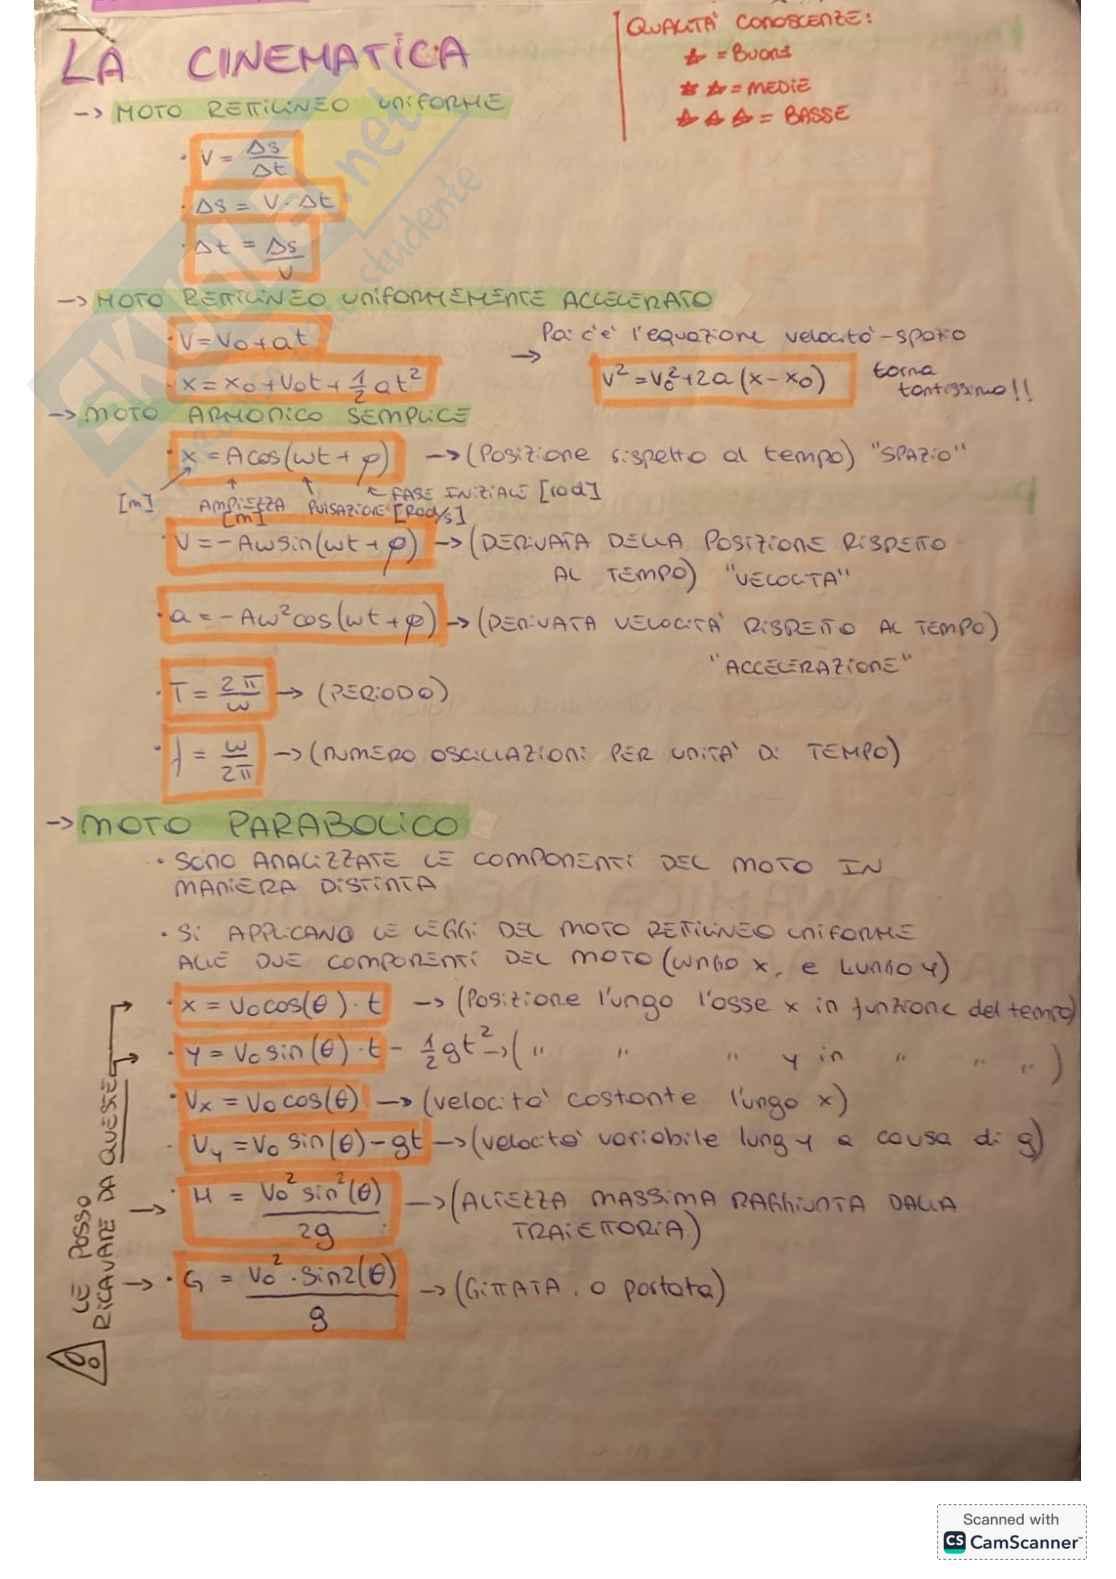 LA CINEMATICA
QUALITA' CONOSCENZE:
☆ = BUONE
☆ ☆ = MEDIE
☆ ☆ ☆ = BASSE
-> MOTO RETTILINEO UNIFORME
• V = Δs/Δt
• Δs = V · Δt
• Δt = Δs/V
-> MOTO RETTILINEO UNIFORMEMENTE ACCELERATO
• V = V₀ + at
• x = x₀ + V₀t + 1/2 at²
-> Poi c'è l'equazione velocità-spazio
V² = V₀² + 2a (x - x₀) torna tantissimo!!
-> MOTO ARMONICO SEMPLICE
• x = A cos(ωt + φ) -> (Posizione rispetto al tempo) "SPAZIO"
[m] AMPIEZZA [m] PULSAZIONE [Rad/s] FASE INIZIALE [rad]
• V = -Aω sin(ωt + φ) -> (DERIVATA DELLA POSIZIONE RISPETTO
AL TEMPO) "VELOCITA"
• a = -Aω² cos(ωt + φ) -> (DERIVATA VELOCITA' RISPETTO AL TEMPO)
"ACCELERAZIONE"
• T = 2π/ω -> (PERIODO)
• f = ω/2π -> (NUMERO OSCILLAZIONI PER UNITA' DI TEMPO)
-> MOTO PARABOLICO
• SONO ANALIZZATE LE COMPONENTI DEL MOTO IN
MANIERA DISTINTA
• SI APPLICANO LE LEGGI DEL MOTO RETTILINEO UNIFORME
ALLE DUE COMPONENTI DEL MOTO (LUNGO x, e LUNGO y)
• x = V₀ cos(θ) · t -> (Posizione lungo l'asse x in funzione del tempo)
• y = V₀ sin(θ) · t - 1/2 gt² -> (" " " y in " " ")
• Vx = V₀ cos(θ) -> (velocità costante lungo x)
• Vy = V₀ sin(θ) - gt -> (velocità variabile lung y a causa di g)
• H = V₀² sin²(θ)/2g -> (ALTEZZA MASSIMA RAGGIUNTA DALLA
TRAIETTORIA)
• G = V₀² · sin2(θ)/g -> (GITTATA, o portata)
LE POSSO
RICAVARE DA QUESTE
SKUOLA.net
studente
Scanned with
CS CamScanner